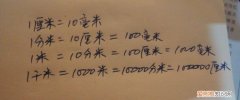 1厘米=10毫米
1分米=10厘米=100毫米
1米=10分米=100厘米=1000毫米
1千米=1000米=10000分米=100000厘米